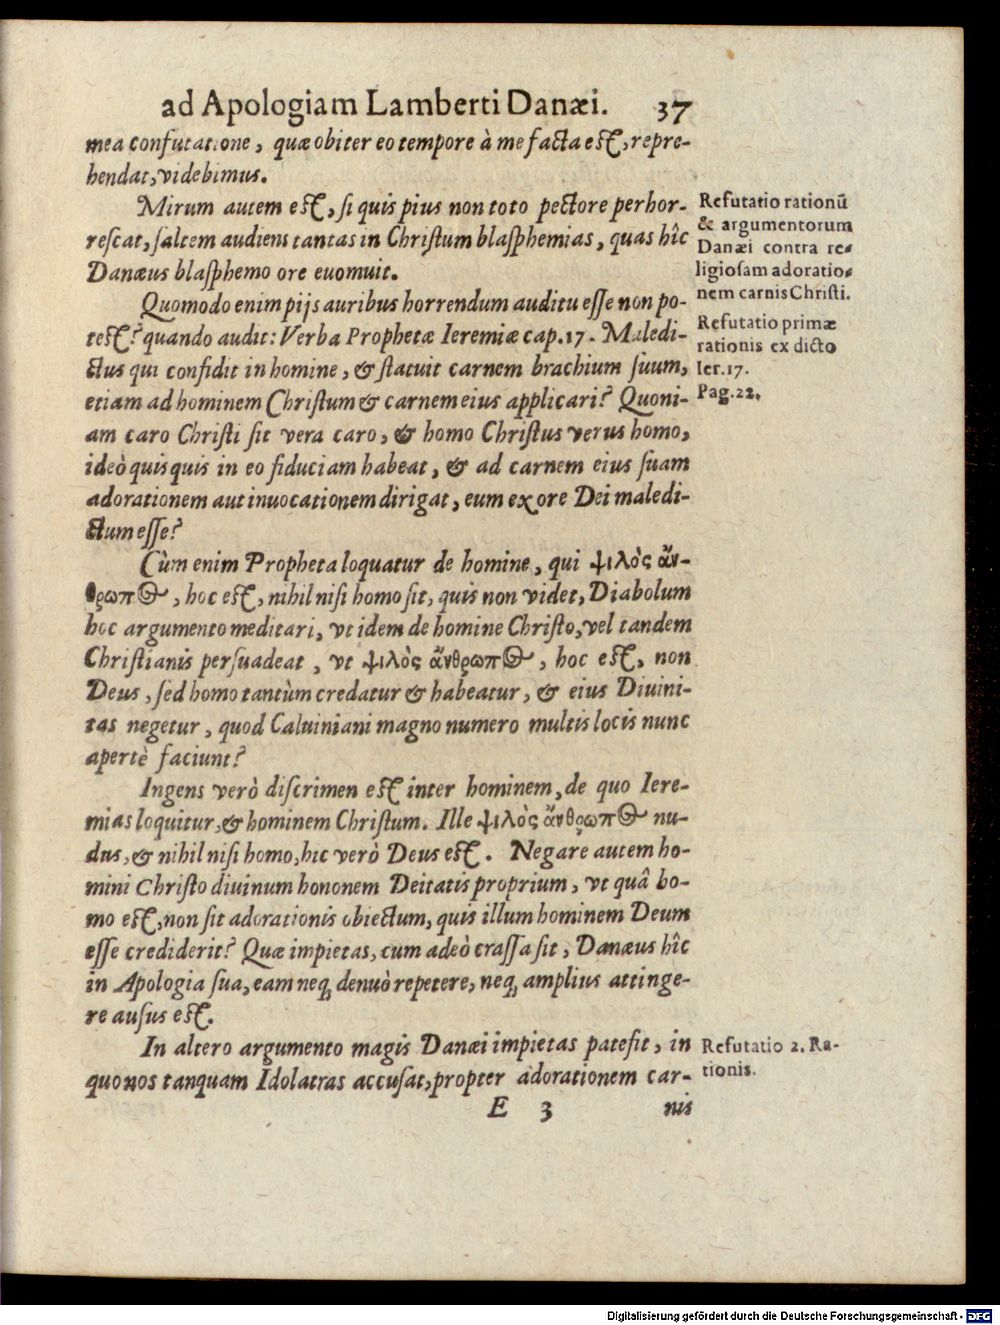 ad Apologiam Lamberti Danæi. 37
mea confutatione, quæ obiter eo tempore à me facta est, repre-
hendat, videbimus.
Mirum autem est, si quis pius non toto pectore perhor-
rescat, saltem audiens tantas in Christum blasphemias, quas hîc
Danæus blasphemo ore euomuit.
Quomodo enim pijs auribus horrendum auditu esse non po-
test? quando audit: Verba Prophetæ Ieremiæ cap. 17. Maledi-
ctus qui confidit in homine, & statuit carnem brachium suum,
etiam ad hominem Christum & carnem eius applicari? Quoni-
am caro Christi sit vera caro, & homo Christus verus homo,
ideò quisquis in eo fiduciam habeat, & ad carnem eius suam
adorationem aut inuocationem dirigat, eum ex ore Dei maledi-
ctum esse?
Cùm enim Propheta loquatur de homine, qui ψιλὸς ἄν-
θρωπος, hoc est, nihil nisi homo sit, quis non videt, Diabolum
hoc argumento meditari, vt idem de homine Christo, vel tandem
Christianis persuadeat, vt ψιλὸς ἄνθρωπος, hoc est, non
Deus, sed homo tantùm credatur & habeatur, & eius Diuini-
tas negetur, quod Caluiniani magno numero multis locis nunc
apertè faciunt?
Ingens verò discrimen est inter hominem, de quo Iere-
mias loquitur, & hominem Christum. Ille ψιλὸς ἄνθρωπος nu-
dus, & nihil nisi homo, hic verò Deus est. Negare autem ho-
mini Christo diuinum hononem Deitatis proprium, vt quâ ho-
mo est, non sit adorationis obiectum, quis illum hominem Deum
esse crediderit? Quæ impietas, cum adeò crassa sit, Danæus hîc
in Apologia sua, eam neq; denuò repetere, neq; amplius attinge-
re ausus est.
In altero argumento magis Danæi impietas patefit, in
quo nos tanquam Idolatras accusat, propter adorationem car-
E 3 nis
Refutatio rationū
& argumentorum
Danæi contra re-
ligiosam adoratio-
nem carnis Christi.
Refutatio primæ
rationis ex dicto
Ier. 17.
Pag. 22.
Refutatio 2. Ra-
tionis.
Digitalisierung gefördert durch die Deutsche Forschungsgemeinschaft - DFG